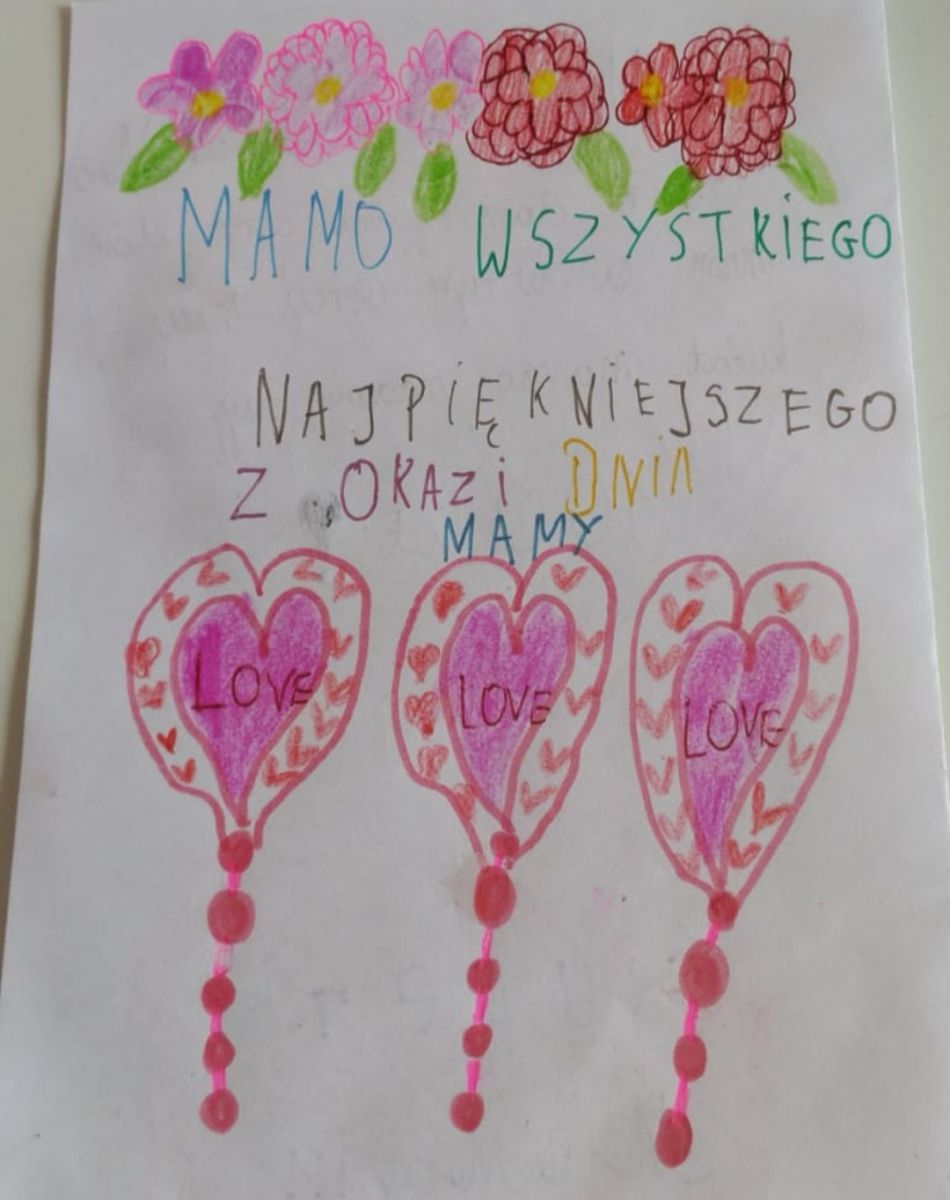 MAMO WSZYSTKiEGO
NAJPiĘKNiEJSZEGO
Z OKAZi DNiA
MAMY
LOVE LOVE LOVE